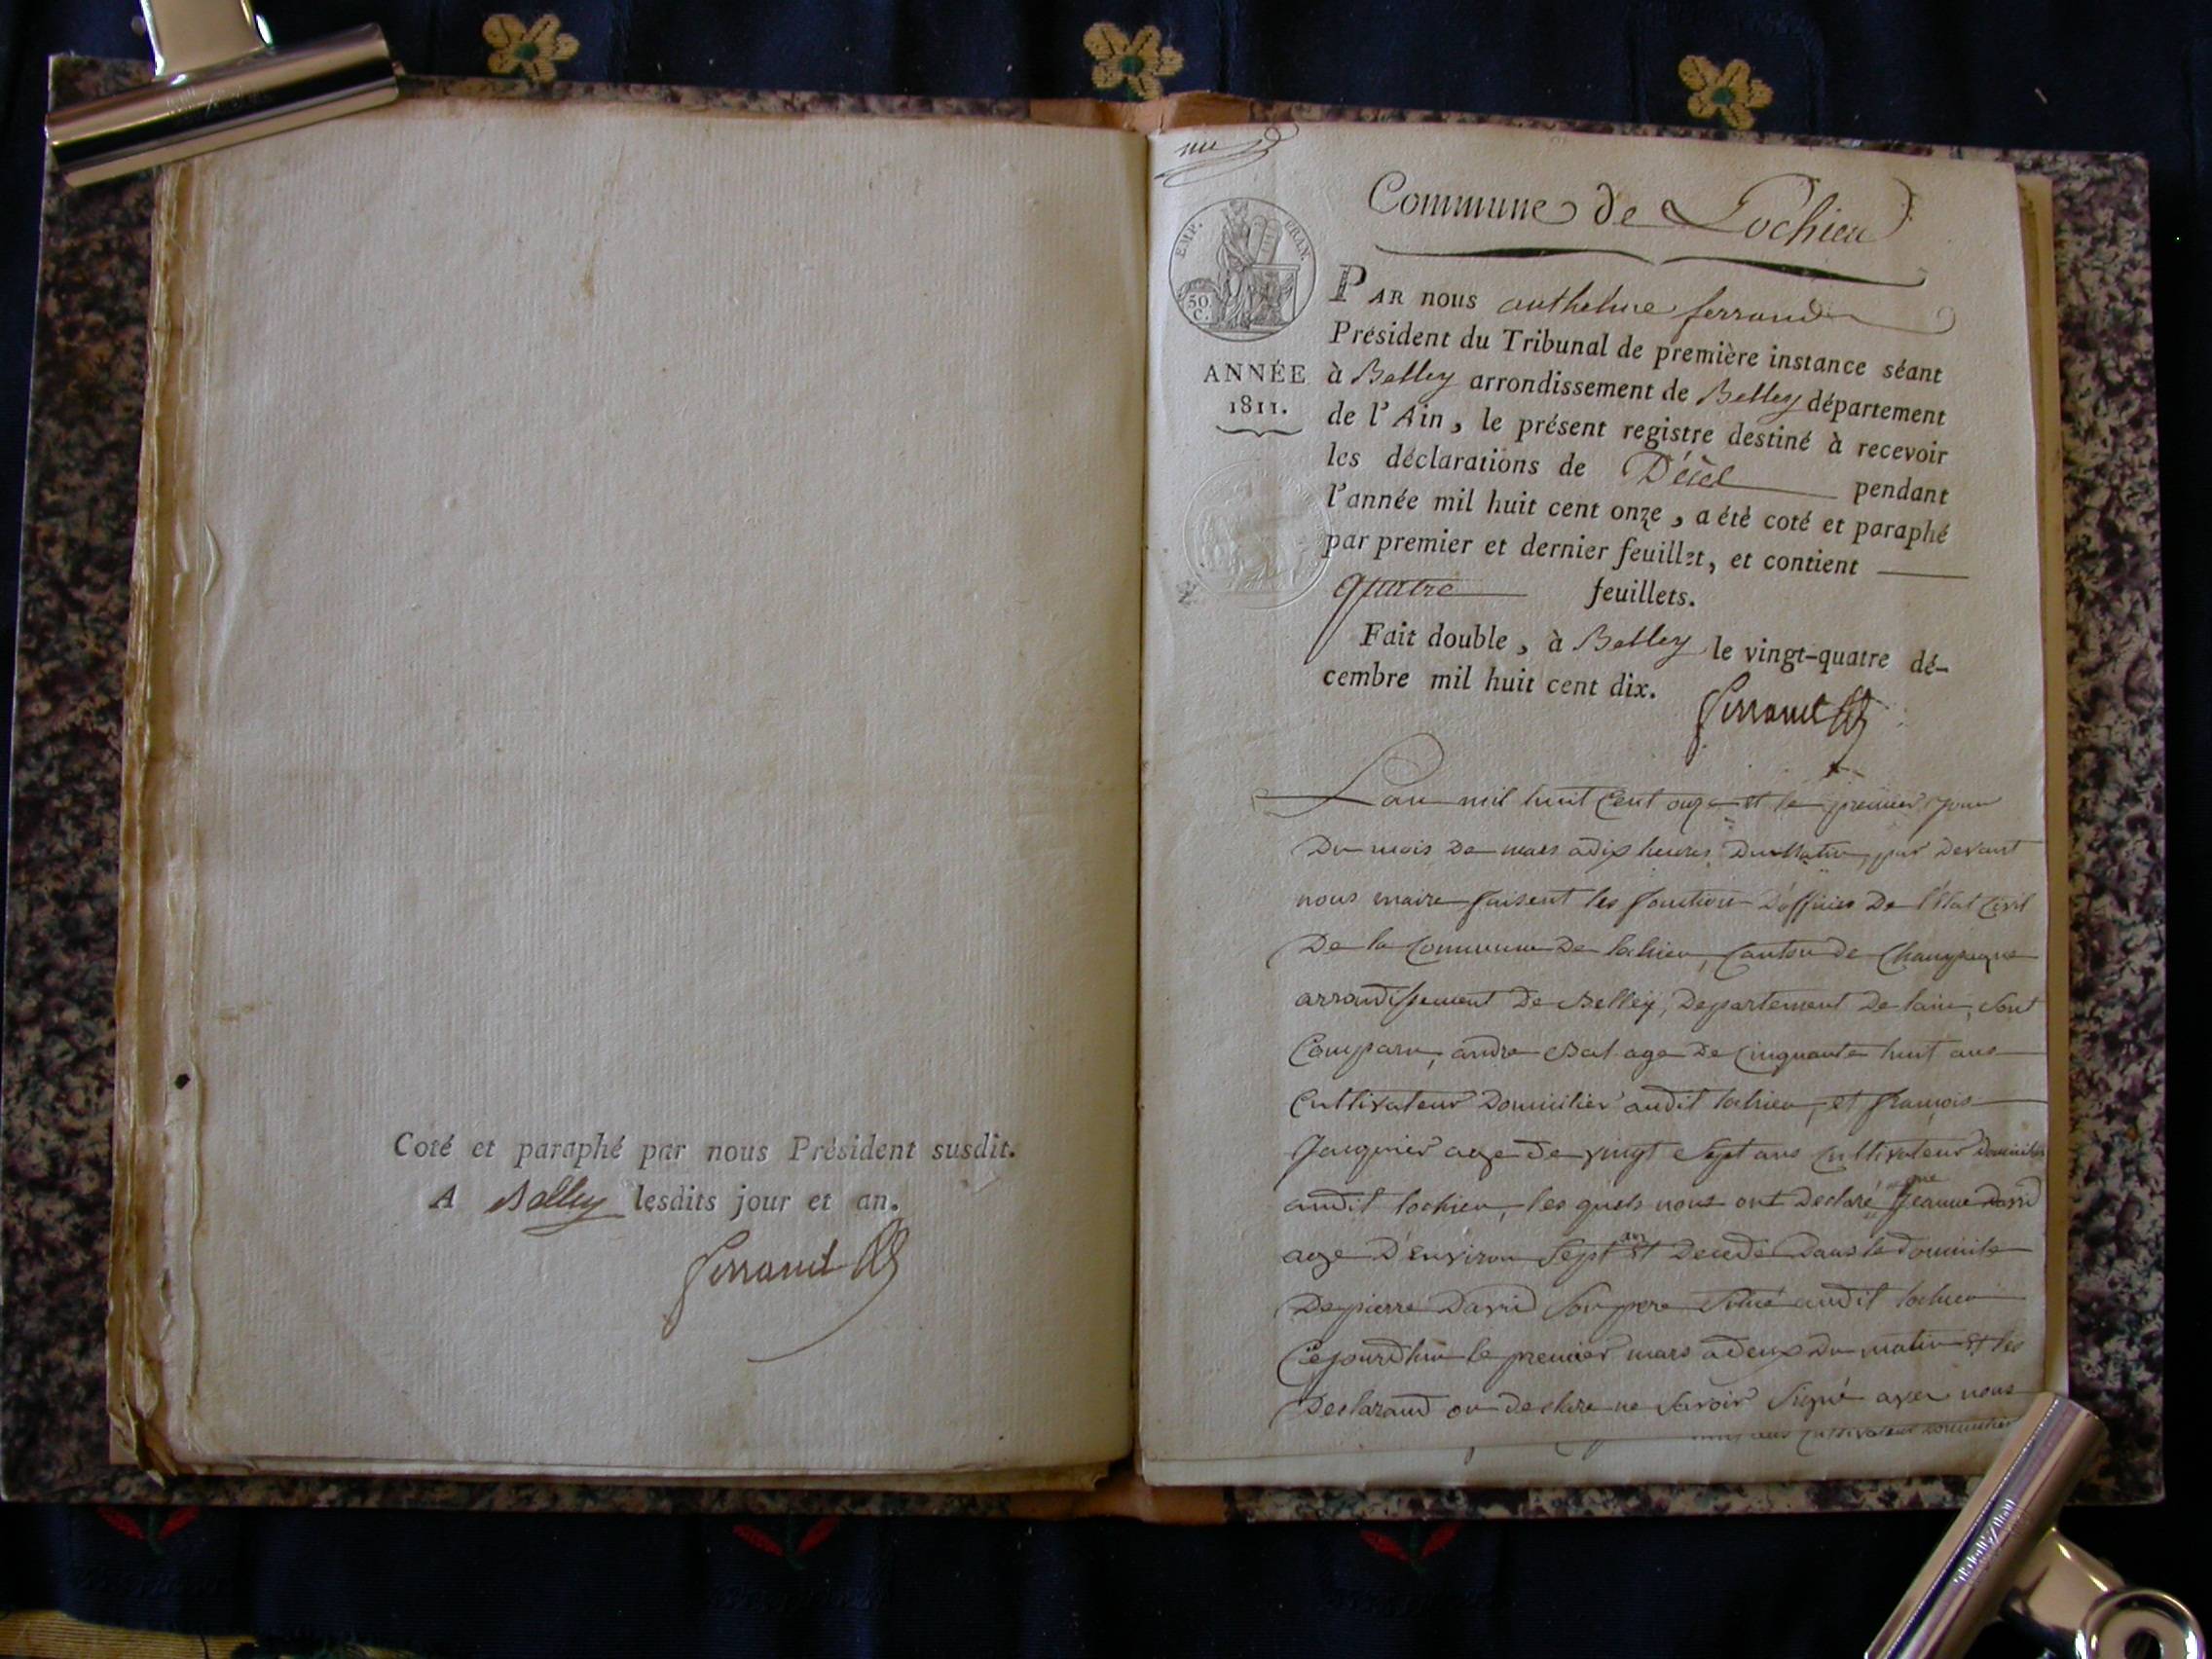 Coté et paraphé par nous Président susdit.
A Belley lesdits jour et an.
Ferrand
un
EMP. FRAN.
50.
C.
ANNÉE
1811.
Commune de Lochieu
PAR nous anthelme ferrand
Président du Tribunal de première instance séant
à Belley arrondissement de Belley département
de l'Ain, le présent registre destiné à recevoir
les déclarations de Décel pendant
l'année mil huit cent onze, a été coté et paraphé
par premier et dernier feuillet, et contient
quatre feuillets.
Fait double, à Belley le vingt-quatre dé-
cembre mil huit cent dix.
Ferrand
Lan mil huit Cent onze et le premier jour
Du mois De mars a dix heures Du Matin, par Devant
nous maire faisent les fonction D'officier De l'Etat Civil
De la Commune De lochieu, Canton de Champagne
arrondissement De Belley, Departement De lain, Sont
Comparu, andre age De Cinquante huit ans
Cultivateur Domicilier audit lochieu, et françois
Jauquier age De vingt Sept ans Cultivateur Domicilier
audit lochieu, les quels nous ont Declaré que Jeanne David
age D'Environ Sept ans Et Decede Dans le Domicile
De pierre David Son pere Situé audit lochieu
Cejourdhui le premier mars a deux Du matin Et les
Declarand on declare ne Savoir Signé avec nous
ans Cultivateur Domicilier